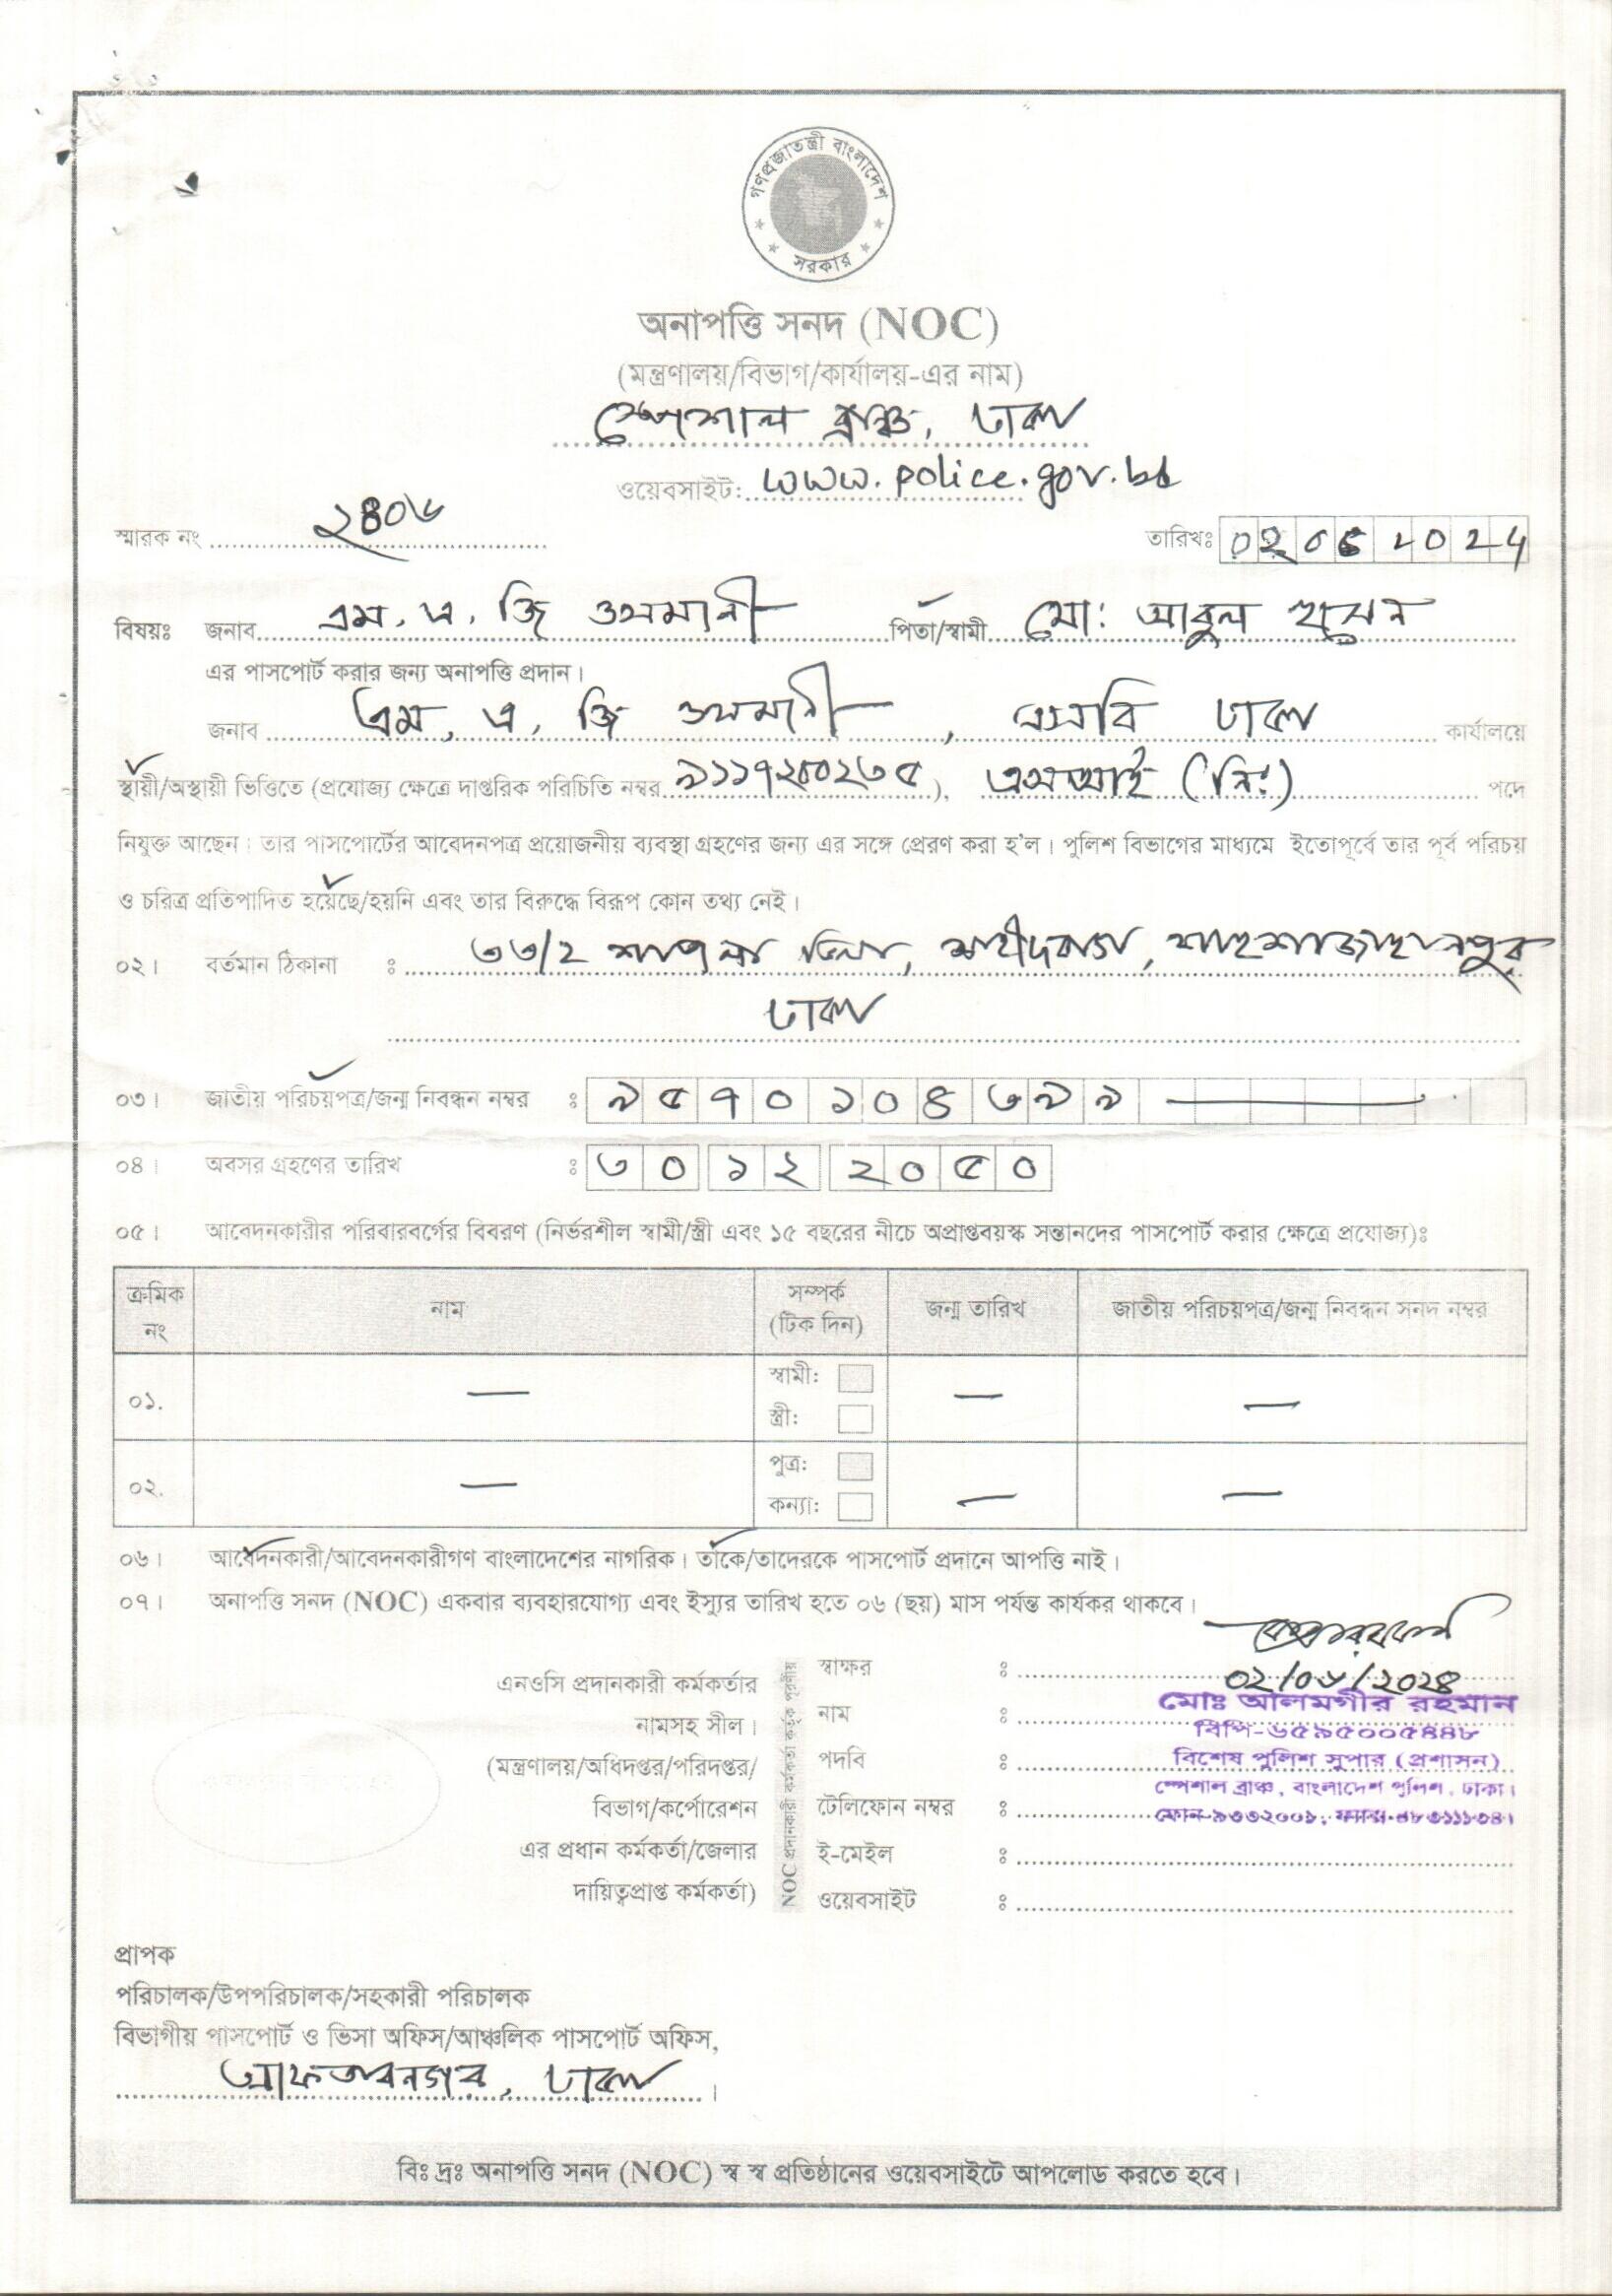 গণপ্রজাতন্ত্রী বাংলাদেশ
সরকার
অনাপত্তি সনদ (NOC)
(মন্ত্রণালয়/বিভাগ/কার্যালয়-এর নাম)
স্পেশাল ব্রাঞ্চ, ঢাকা
ওয়েবসাইট: www.police.gov.bd
স্মারক নং ২৪০৬ তারিখঃ 02062024
বিষয়ঃ জনাব এম. এ. জি ওসমানী পিতা/স্বামী মো: আবুল হাসেন
এর পাসপোর্ট করার জন্য অনাপত্তি প্রদান।
জনাব এম, এ, জি ওসমানী, এসবি ঢাকা কার্যালয়ে
স্থায়ী/অস্থায়ী ভিত্তিতে (প্রযোজ্য ক্ষেত্রে দাপ্তরিক পরিচিতি নম্বর ৯১১৭২০০২৩৫), এসআই (নি:) পদে
নিযুক্ত আছেন। তার পাসপোর্টের আবেদনপত্র প্রয়োজনীয় ব্যবস্থা গ্রহণের জন্য এর সঙ্গে প্রেরণ করা হ'ল। পুলিশ বিভাগের মাধ্যমে ইতোপূর্বে তার পূর্ব পরিচয়
ও চরিত্র প্রতিপাদিত হয়েছে/হয়নি এবং তার বিরুদ্ধে বিরূপ কোন তথ্য নেই।
০২। বর্তমান ঠিকানা : ৩৩/২ শাপলা ভিলা, শহীদবাগ, শাহশাজাহানপুর
ঢাকা
০৩। জাতীয় পরিচয়পত্র/জন্ম নিবন্ধন নম্বর : ৯৫৭০১০৪৩৯৯
০৪। অবসর গ্রহণের তারিখ : ৩০ ১২ ২০৫০
০৫। আবেদনকারীর পরিবারবর্গের বিবরণ (নির্ভরশীল স্বামী/স্ত্রী এবং ১৫ বছরের নীচে অপ্রাপ্তবয়স্ক সন্তানদের পাসপোর্ট করার ক্ষেত্রে প্রযোজ্য)ঃ
ক্রমিক নং নাম সম্পর্ক (টিক দিন) জন্ম তারিখ জাতীয় পরিচয়পত্র/জন্ম নিবন্ধন সনদ নম্বর
০১. — স্বামী: — —
স্ত্রী:
০২. — পুত্র: — —
কন্যা:
০৬। আবেদনকারী/আবেদনকারীগণ বাংলাদেশের নাগরিক। তাঁকে/তাদেরকে পাসপোর্ট প্রদানে আপত্তি নাই।
০৭। অনাপত্তি সনদ (NOC) একবার ব্যবহারযোগ্য এবং ইস্যুর তারিখ হতে ০৬ (ছয়) মাস পর্যন্ত কার্যকর থাকবে।
এনওসি প্রদানকারী কর্মকর্তার
নামসহ সীল।
(মন্ত্রণালয়/অধিদপ্তর/পরিদপ্তর/
বিভাগ/কর্পোরেশন
এর প্রধান কর্মকর্তা/জেলার
দায়িত্বপ্রাপ্ত কর্মকর্তা)
NOC প্রদানকারী কর্মকর্তা কর্তৃক পূরণীয়
স্বাক্ষর : ০২/০৬/২০২৪
নাম : মোঃ আলমগীর রহমান
বিপি-৬৫৯৫০০৫৪৪৮
পদবি : বিশেষ পুলিশ সুপার (প্রশাসন)
স্পেশাল ব্রাঞ্চ, বাংলাদেশ পুলিশ, ঢাকা।
টেলিফোন নম্বর : ফোন-৯৩৩২০০১, ফ্যাক্স-৪৮৩১১১৩৪।
ই-মেইল :
ওয়েবসাইট :
প্রাপক
পরিচালক/উপপরিচালক/সহকারী পরিচালক
বিভাগীয় পাসপোর্ট ও ভিসা অফিস/আঞ্চলিক পাসপোর্ট অফিস,
আফতাবনগর, ঢাকা।
বিঃ দ্রঃ অনাপত্তি সনদ (NOC) স্ব স্ব প্রতিষ্ঠানের ওয়েবসাইটে আপলোড করতে হবে।